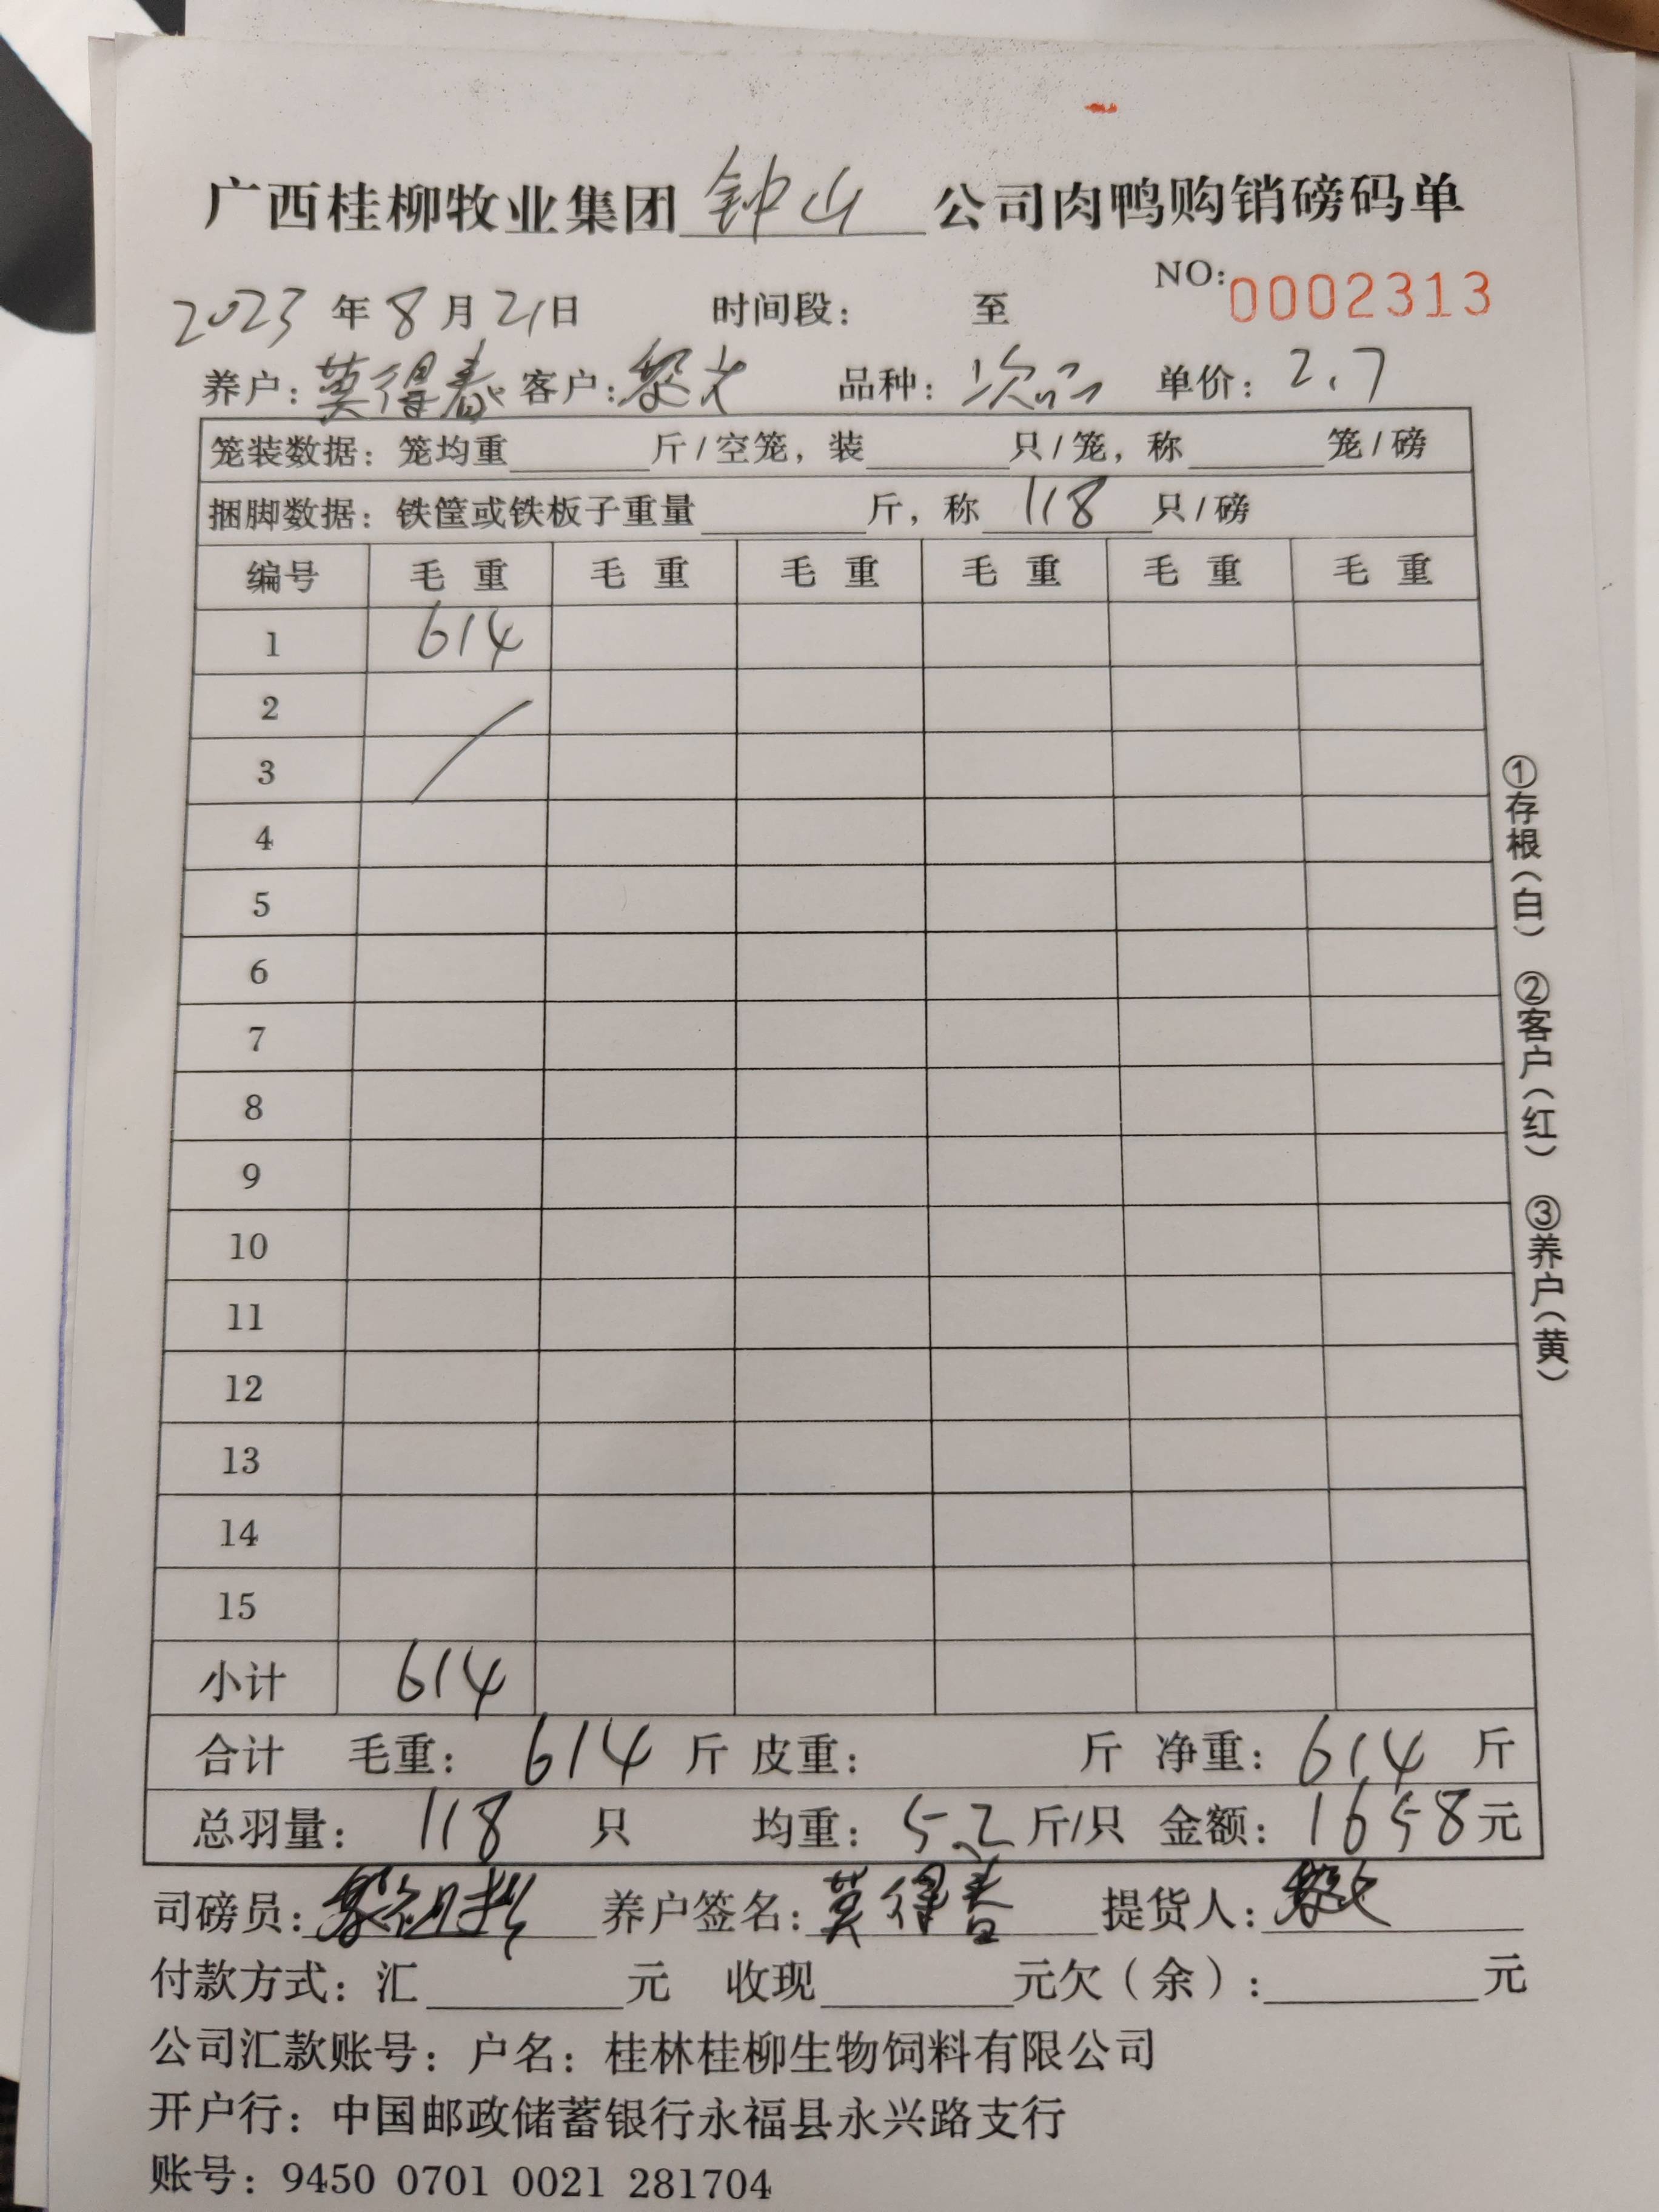 广西桂柳牧业集团 钟山 公司肉鸭购销磅码单
NO: 0002313
2023 年 8 月 21 日 时间段: 至
养户: 莫得春 客户: 黎 品种: 次品 单价: 2.7
笼装数据: 笼均重 斤/空笼, 装 只/笼, 称 笼/磅
捆脚数据: 铁筐或铁板子重量 斤, 称 118 只/磅
编号 毛重 毛重 毛重 毛重 毛重 毛重
1 614
2
3
4
5
6
7
8
9
10
11
12
13
14
15
小计 614
合计 毛重: 614 斤 皮重: 斤 净重: 614 斤
总羽量: 118 只 均重: 5.2 斤/只 金额: 1658 元
司磅员: 养户签名: 莫得春 提货人:
付款方式: 汇 元 收现 元欠(余): 元
公司汇款账号: 户名: 桂林桂柳生物饲料有限公司
开户行: 中国邮政储蓄银行永福县永兴路支行
账号: 9450 0701 0021 281704
①存根(白) ②客户(红) ③养户(黄)